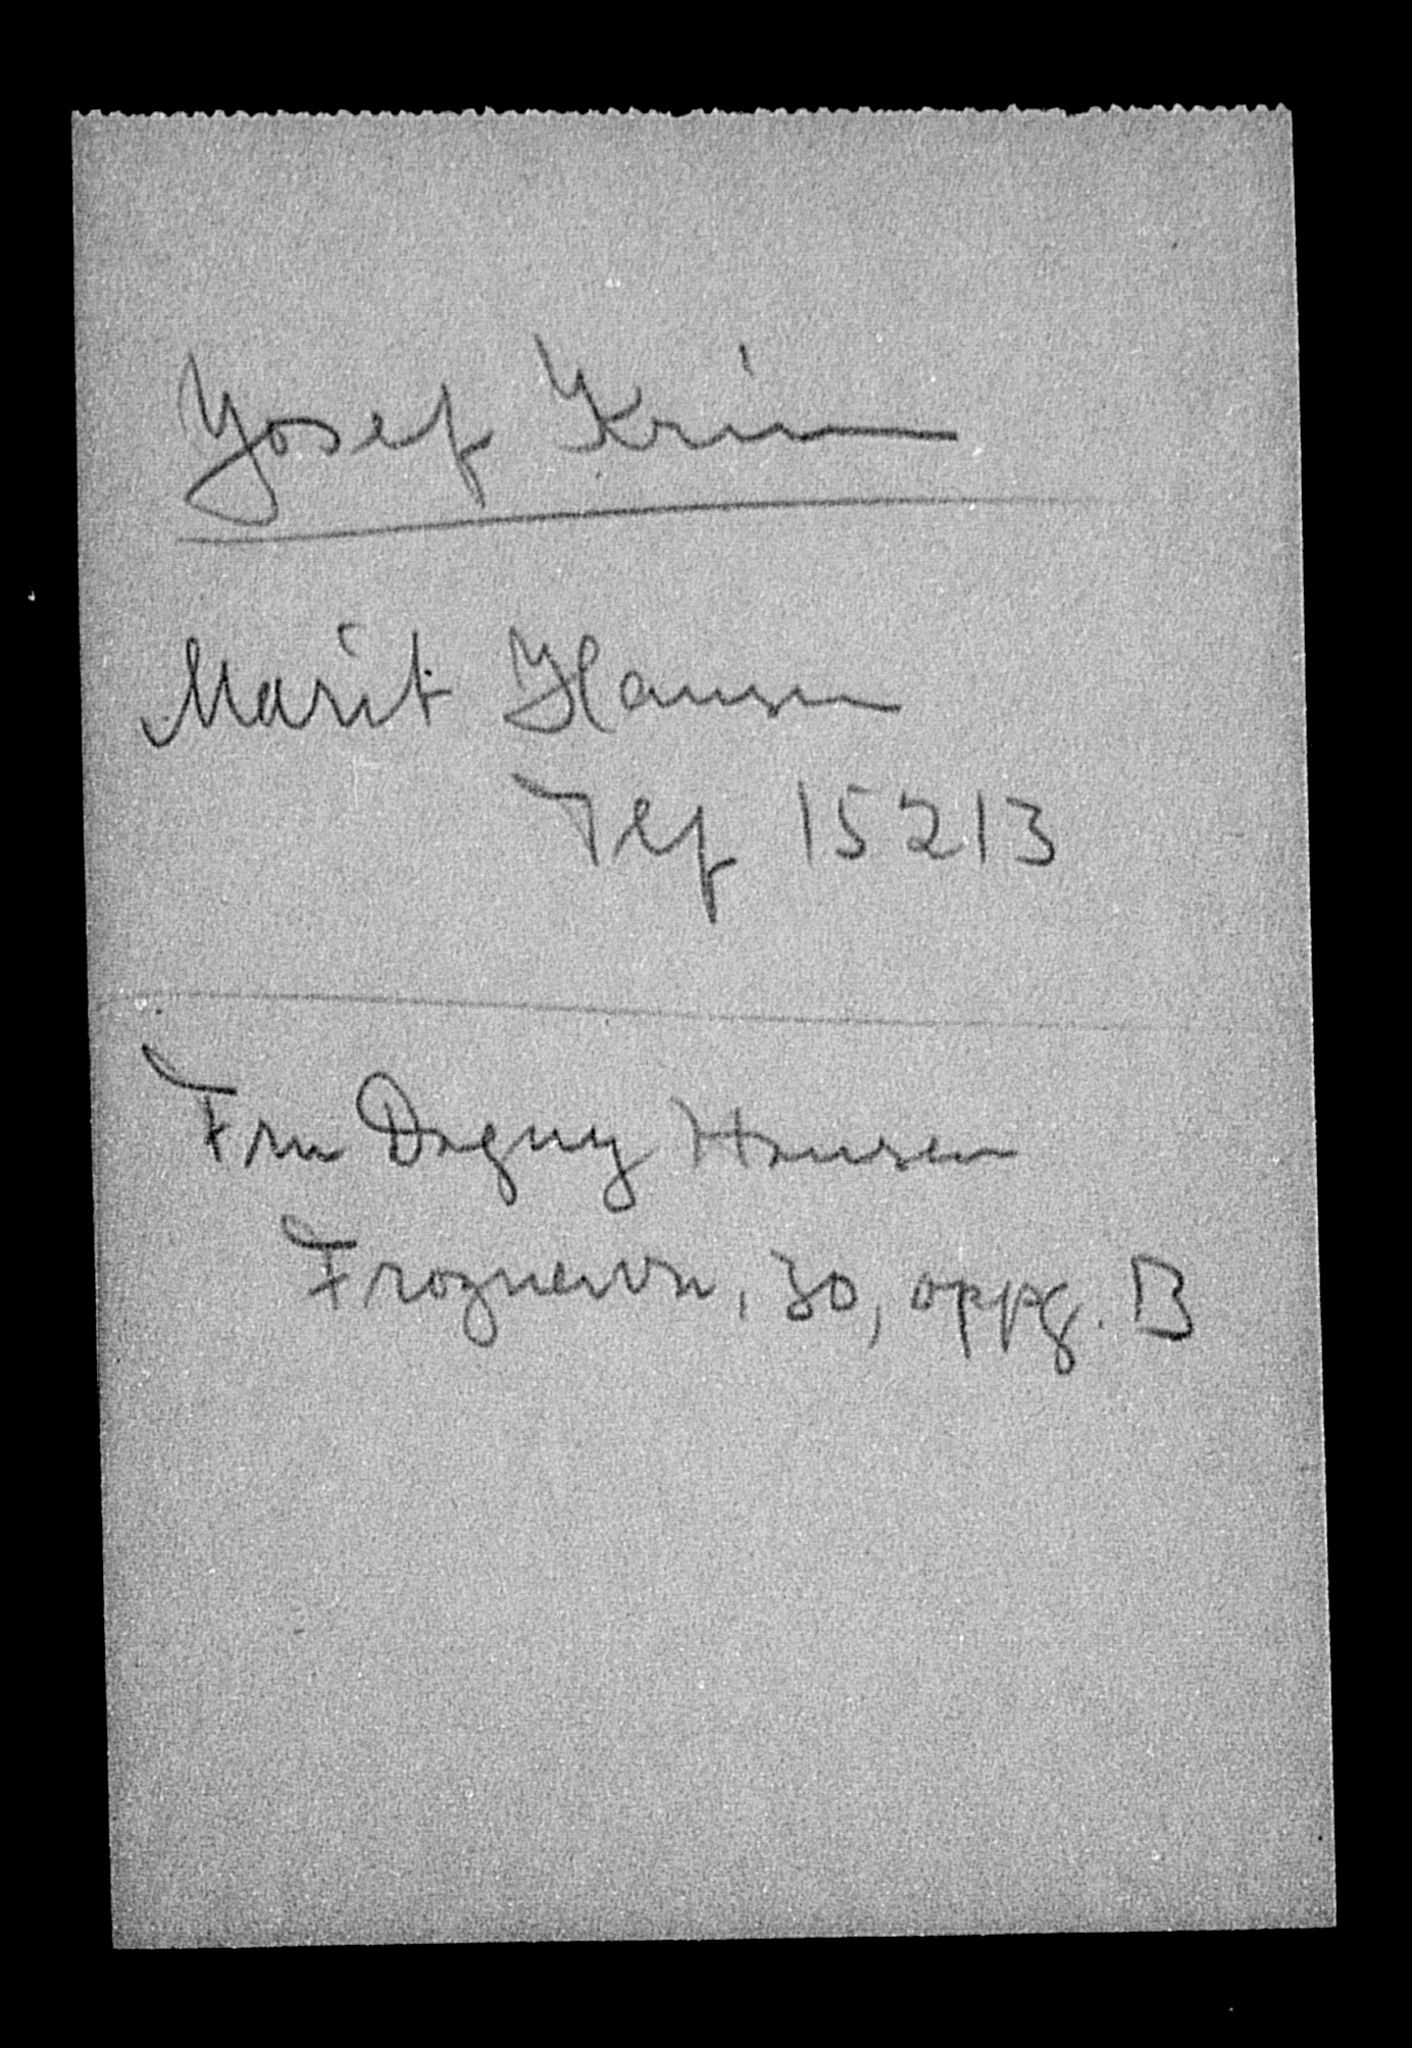 Josef Krim
Marit Hansen
Tlf 15213
Fru Dagny Hansen
Frognervn, 30, oppg. B